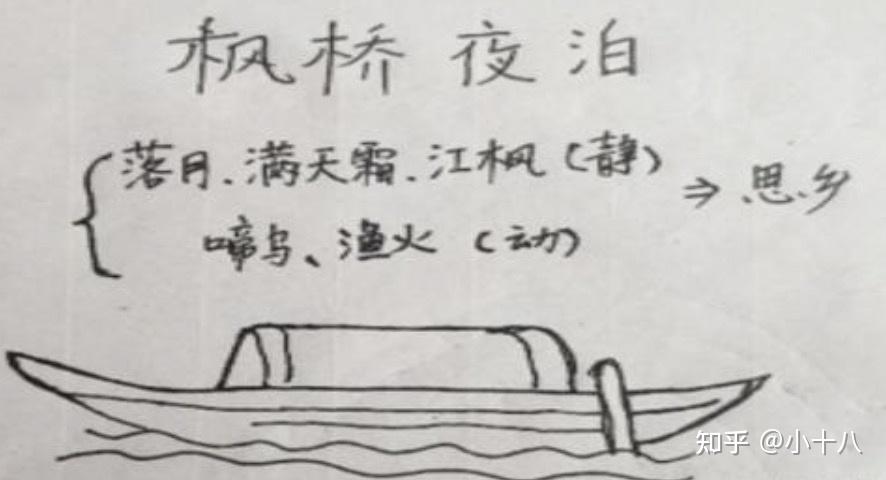 枫桥夜泊
落月、满天霜、江枫(静)
啼乌、渔火(动)
⇒ 思乡
知乎 @小十八